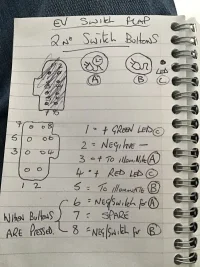 EV Switch FLAP
2 No Switch Buttons
A
B
LED
C
7 8
7
5
3
4
1 2
1 = + GREEN LED C
2 = Negative -
3 = + To illuminate A
4 = + RED LED C
5 = To illuminate B
6 = NEG/Switch for A
7 = SPARE
8 = NEG/Switch for B
When Buttons
ARE PRESSED.